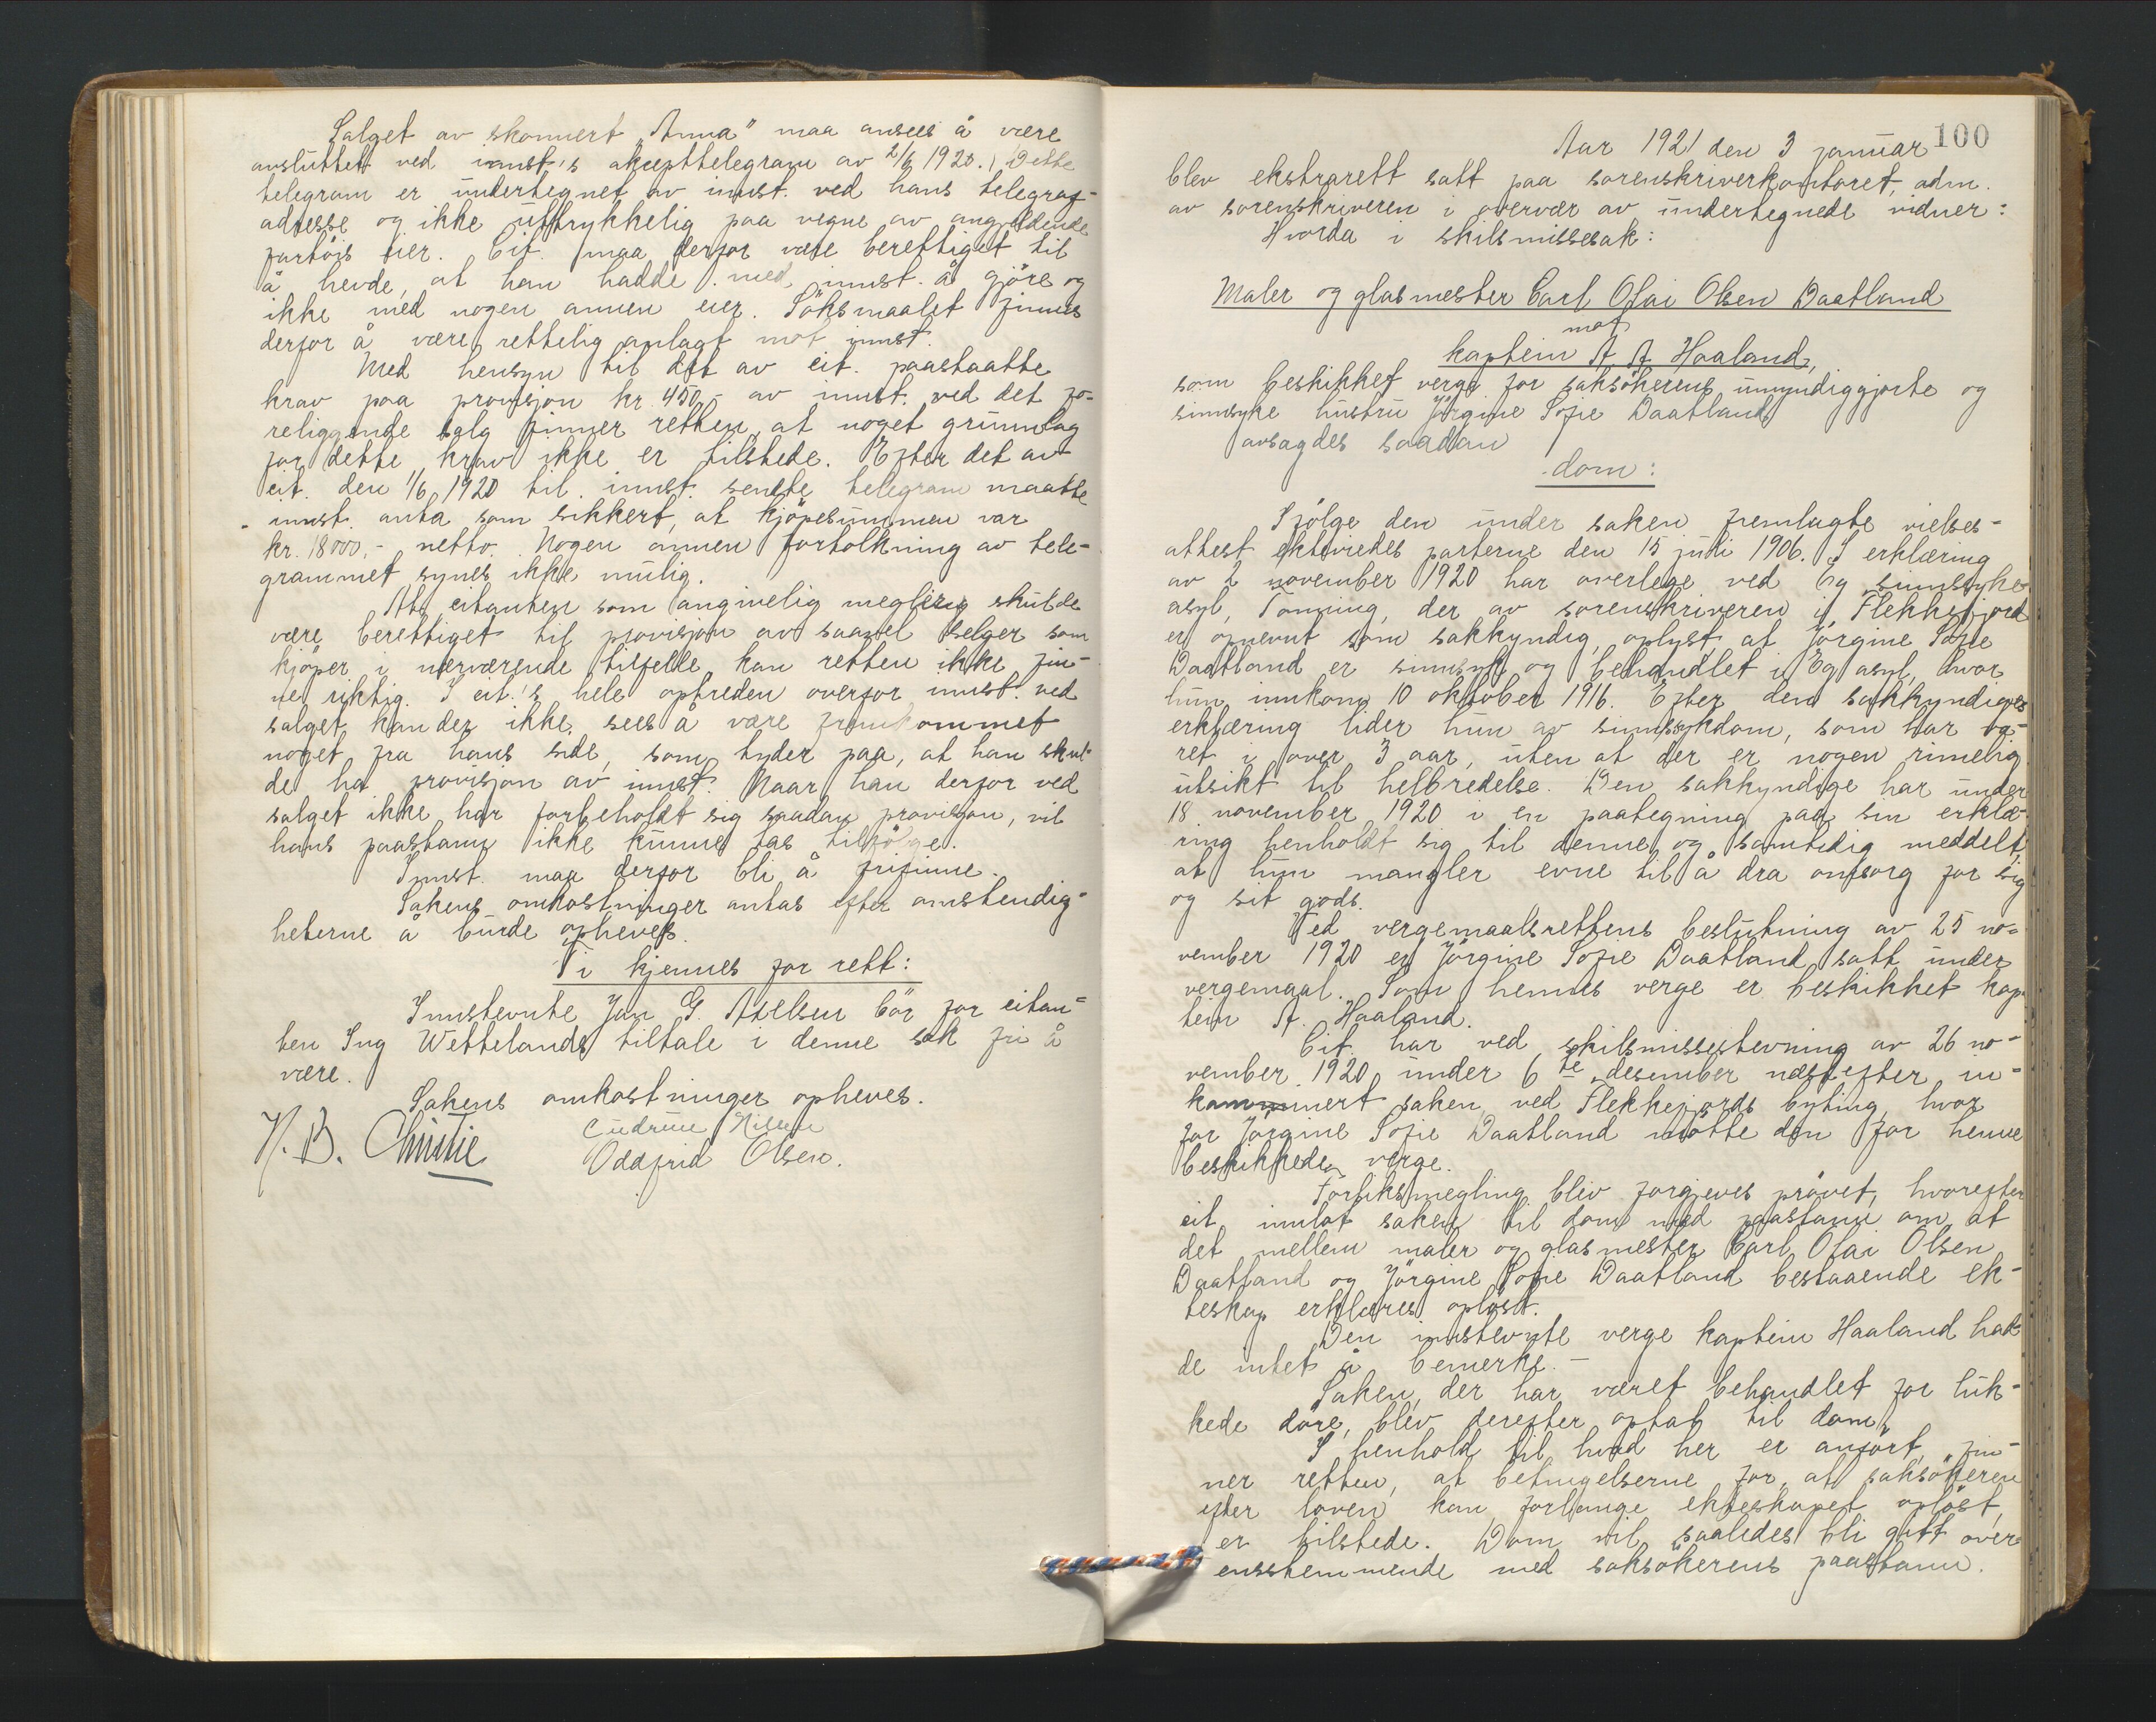 Salget av skonnert "Anna" maa ansees å være
avsluttet ved innst.'s akcepttelegram av 2/6 1920. Dette
telegram er undertegnet av innst. ved hans telegraf-
adresse og ikke uttrykkelig paa vegne av angjeldende
fartöis eier. Cit. maa derfor være berettiget til
å hevde, at han hadde med innst. å gjöre og
ikke med nogen annen eier. Söksmaalet finnes
derfor å være rettelig anlagt mot innst.
Med hensyn til det av cit. paastaatte
krav paa provisjon kr. 450,- av innst. ved det fo-
religgende salg finner retten, at noget grunnlag
for dette krav ikke er tilstede. Efter det av
cit. den 1/6 1920 til innst. sendte telegram maatte
innst. anta som sikkert, at kjöpesummen var
kr. 18000,- netto. Nogen annen fortolkning av tele-
grammet synes ikke mulig.
At citanten som angivelig megler skulde
være berettiget til provisjon av saavel selger som
kjöper i nærværende tilfelle, kan retten ikke fin-
ne riktig. I cit.'s hele optreden overfor innst. ved
salget kan der ikke sees å være fremkommet
noget fra hans side, som tyder paa, at han skul-
de ha provisjon av innst. Naar han derfor ved
salget ikke har forbeholdt sig saadan provisjon, vil
hans paastann ikke kunne tas tilfölge.
Innst. maa derfor bli å frifinne.
Sakens omkostninger antas efter omstendig-
heterne å burde opheves.
Ti kjennes for rett:
Innstevnte Jan G. Axelsen bör for citan-
ten Ing Wettelands tiltale i denne sak fri å
være.
Sakens omkostninger opheves.
N. B. Christie
Gudrun Nilsen
Oddfrid Olsen.
100
Aar 1921 den 3 januar
blev ekstrarett satt paa sorenskriverkontoret, adm.
av sorenskriveren i overvær av undertegnede vidner:
Hvorda i skilsmissesak:
Maler og glasmester Carl Olai Olsen Daatland
mot
kaptein A. A. Haaland,
som beskikket verge for saksökerens umyndiggjorte og
sinnsyke hustru Jörgine Sofie Daatland
avsagdes saadan
dom:
Ifölge den under saken fremlagte vielses-
attest ektviedes parterne den 15 juli 1906. I erklæring
av 2 november 1920 har overlege ved Eg sinnsyke-
asyl, Tönning, der av sorenskriveren i Flekkefjord
er opnevnt som sakkyndig, oplyst, at Jörgine Sofie
Daatland er sinnsyk og behandlet i Eg asyl, hvor
hun innkom 10 oktober 1916. Efter den sakkyndiges
erklæring lider hun av sinnsykdom, som har va-
ret i over 3 aar, uten at der er nogen rimelig
utsikt til helbredelse. Den sakkyndige har under
18 november 1920 i en paategning paa sin erklæ-
ring henholdt sig til denne og samtidig meddelt,
at hun mangler evne til å dra omsorg for sig
og sit gods.
Ved vergemaalsrettens beslutning av 25 no-
vember 1920 er Jörgine Sofie Daatland satt under
vergemaal. Som hennes verge er beskikket kap-
tein A. Haaland.
Cit. har ved skilsmissestevning av 26 no-
vember 1920 under 6te desember næstefter in-
kammert saken ved Flekkefjords byting, hvor
for Jörgine Sofie Daatland mötte den for henne
beskikkede verge.
Forliksmegling blev forgjeves prövet, hvorefter
cit. innlot saken til dom med paastann om, at
det mellem maler og glasmester Carl Olai Olsen
Daatland og Jörgine Sofie Daatland bestaaende ek-
teskap erklæres oplöst.
Den innstevnte verge kaptein Haaland had-
de intet å bemerke.-
Saken, der har været behandlet for luk-
kede döre, blev derefter optat til dom.
I henhold til hvad her er anfört, fin-
ner retten, at betingelserne for, at saksökeren
efter loven kan forlange ekteskapet oplöst,
er tilstede. Dom vil saaledes bli gitt over-
ensstemmende med saksökerens paastann.